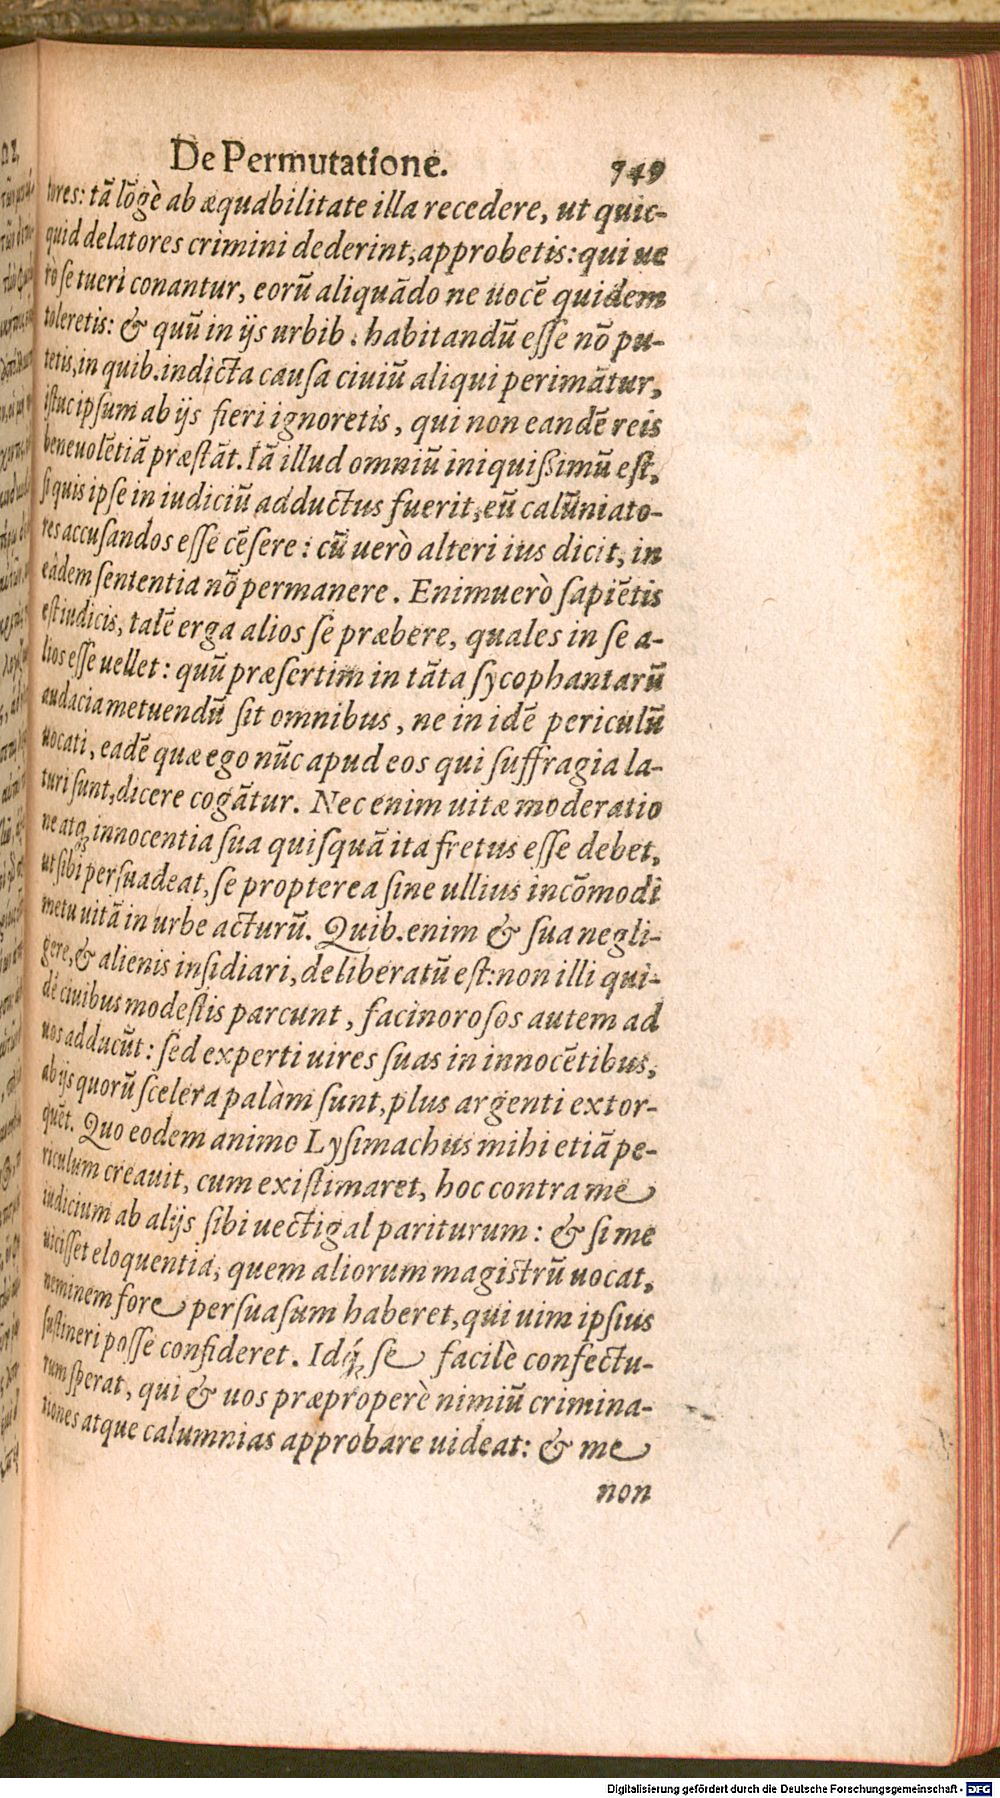 De Permutatione. 749
tores: tã lõgè ab æquabilitate illa recedere, ut quic-
quid delatores crimini dederint, approbetis: qui ue
rò ſe tueri conantur, eorũ aliquãdo ne uocẽ quidem
toleretis: & quũ in ijs urbib. habitandũ eſſe nõ pu-
tetis, in quib. indicta cauſa ciuiũ aliqui perimãtur,
iſtuc ipſum ab ijs fieri ignoretis, qui non eandẽ reis
beneuolẽtiã præſtãt. Iã illud omniũ iniquiſſimũ eſt,
ſi quis ipſe in iudiciũ adductus fuerit, eũ calũniato-
res accuſandos eſſe cẽſere: cũ uerò alteri ius dicit, in
eâdem ſententia nõ permanere. Enimuerò ſapiẽtis
eſt iudicis, talẽ erga alios ſe præbere, quales in ſe a-
lios eſſe uellet: quũ præſertim in tãta ſycophantarũ
audacia metuendũ ſit omnibus, ne in idẽ periculũ
uocati, eadẽ quæ ego nũc apud eos qui ſuffragia la-
turi ſunt, dicere cogãtur. Nec enim uitæ moderatio
ne atq; innocentia ſua quiſquã ita fretus eſſe debet,
ut ſibi perſuadeat, ſe propterea ſine ullius incõmodi
metu uitã in urbe acturũ. Quib. enim & ſua negli-
gere, & alienis inſidiari, deliberatũ eſt: non illi qui-
dẽ ciuibus modeſtis parcunt, facinoroſos autem ad
uos adducũt: ſed experti uires ſuas in innocẽtibus,
ab ijs quorũ ſcelera palàm ſunt, plus argenti extor-
quẽt. Quo eodem animo Lyſimachus mihi etiã pe-
riculum creauit, cum exiſtimaret, hoc contra me
iudicium ab alijs ſibi uectigal pariturum: & ſi me
uiciſſet eloquentia, quem aliorum magiſtrũ uocat,
neminem fore perſuaſum haberet, qui uim ipſius
ſuſtineri poſſe confideret. Idq́; ſe facilè confectu-
rum ſperat, qui & uos præproperè nimiũ crimina-
tiones atque calumnias approbare uideat: & me
non
Digitalisierung gefördert durch die Deutsche Forschungsgemeinschaft - DFG